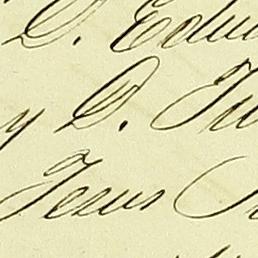 D. Edu
y D. Ju
Jesus